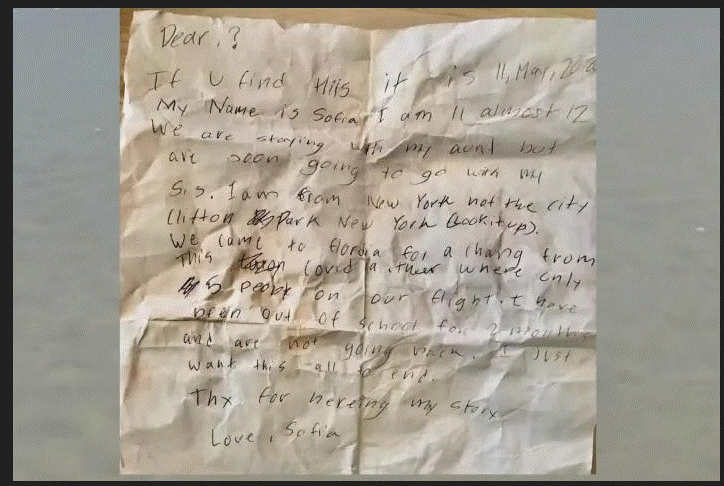 Dear, ?
If U find this it is 11, May, 20
My Name is Sofia I am 11 almost 12
We are staying with my aunt but
are soon going to go with my
Sis. I am from New York not the city
Clifton Park New York (look it up).
We came to Flordia for a chang from
This Covid 19. ther where only
5 people on our flight. I have
been out of school for 2 months
and are not going back. I just
want this all to end.
Thx for hereing my story
Love, Sofia